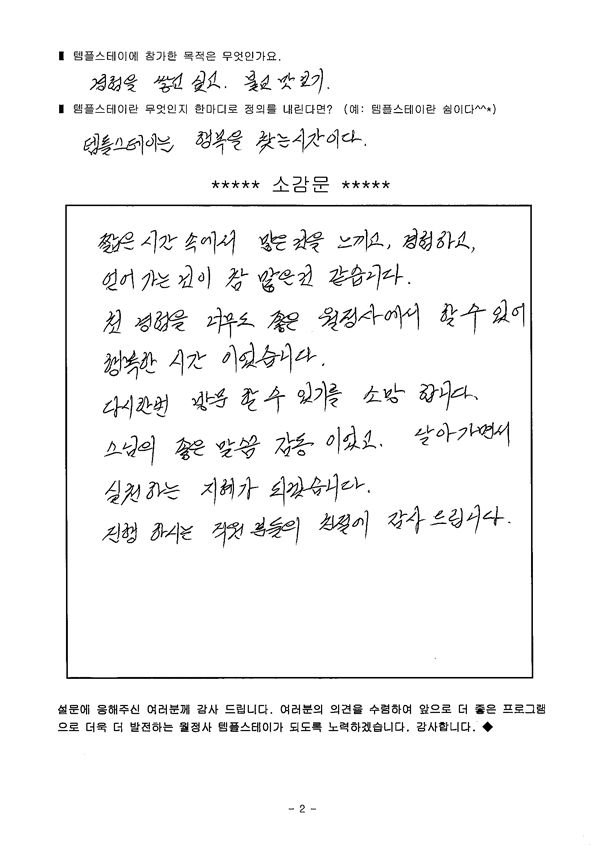 ▮ 템플스테이에 참가한 목적은 무엇인가요.
경험을 쌓고 싶고. 불교 맛보기.
▮ 템플스테이란 무엇인지 한마디로 정의를 내린다면? (예: 템플스테이란 쉼이다^^*)
템플스테이는 행복을 찾는시간이다.
***** 소감문 *****
짧은 시간 속에서 많은 것을 느끼고, 경험하고,
얻어 가는 것이 참 많은것 같습니다.
첫 경험을 너무도 좋은 월정사에서 할 수 있어
행복한 시간 이었습니다.
다시한번 방문 할 수 있기를 소망 합니다.
스님의 좋은 말씀 감동 이었고. 살아가면서
실천하는 지혜가 되겠습니다.
진행 하시는 직원 분들의 친절에 감사 드립니다.
설문에 응해주신 여러분께 감사 드립니다. 여러분의 의견을 수렴하여 앞으로 더 좋은 프로그램
으로 더욱 더 발전하는 월정사 템플스테이가 되도록 노력하겠습니다. 감사합니다. ◆
- 2 -